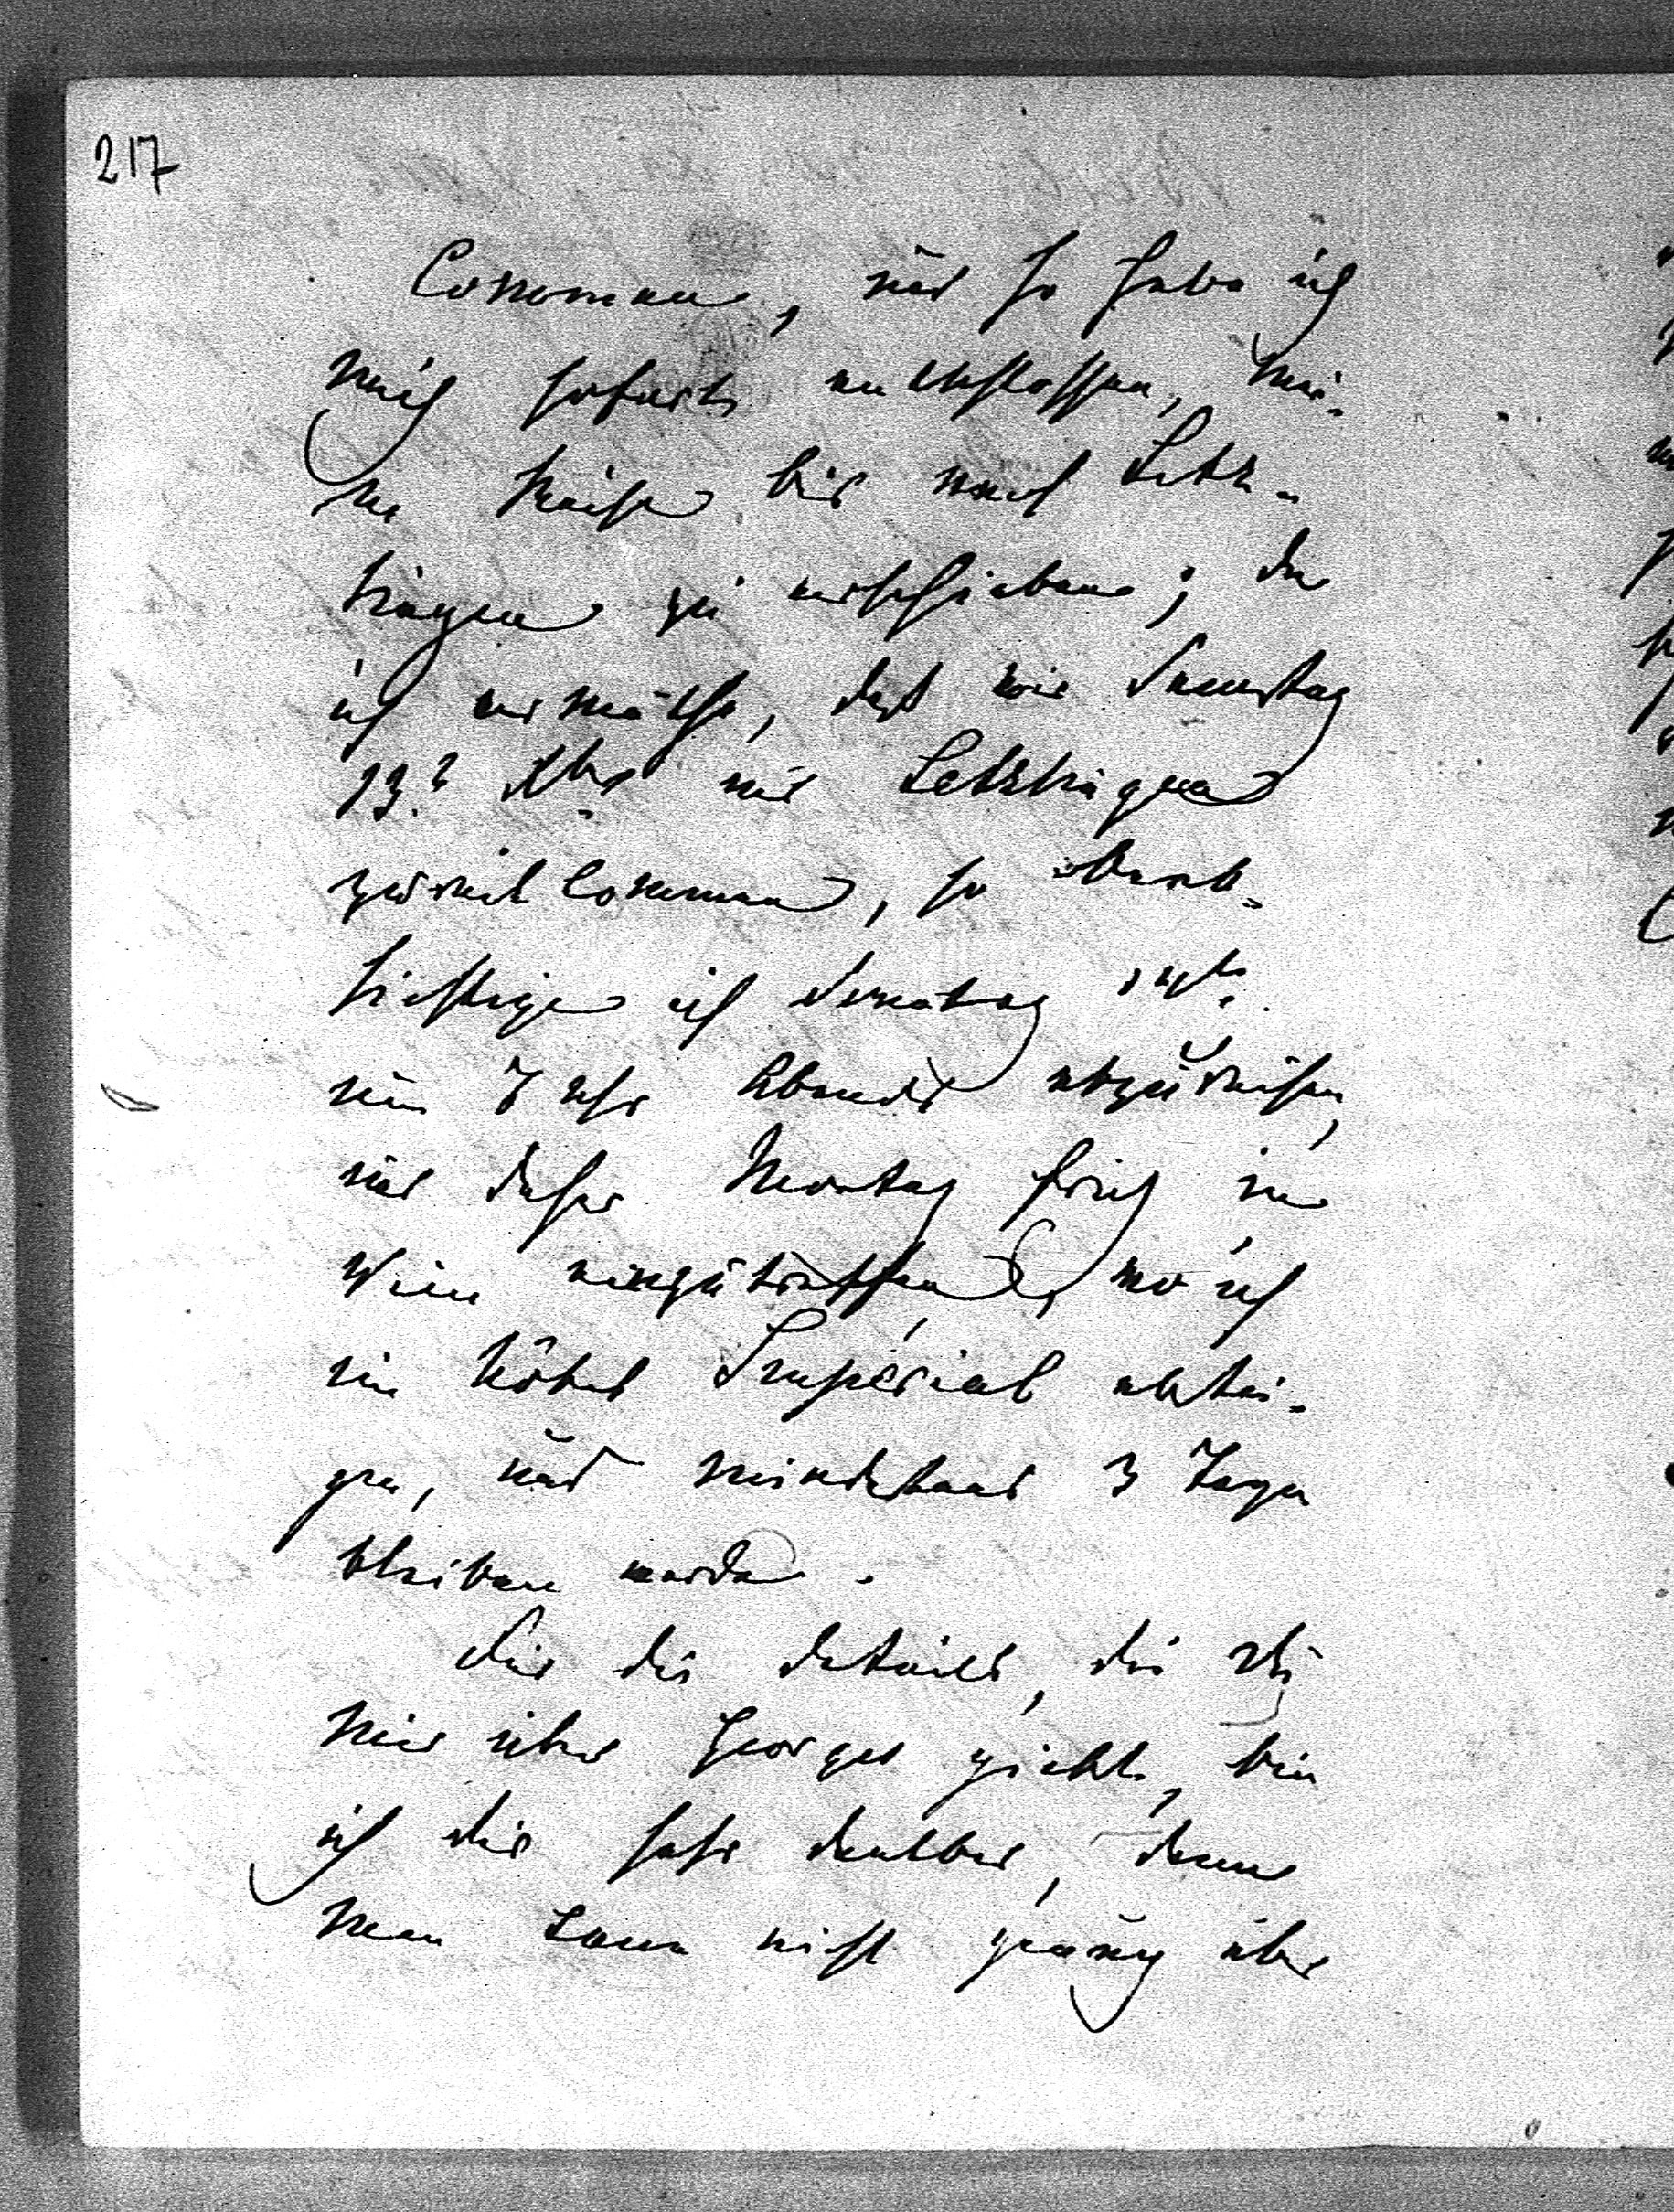 217
Commen, und so habe ich
mich sofort entschlossen, mei-
ne Reise bis nach Letz-
lingen zu verschieben; da
ich vermuthe, daß wir Samstag
13t Xbr aus Letzlingen
zurück Commen, so beab-
sichtige ich Sonntag 14t
um 7 Uhr Abends abzureisen,
und daher Montag früh in
Wien einzutreffen, wo ich
im Hôtel Impérial abstei-
gen, und mindestens 3 Tage
bleiben werde.
Für die Details, die Du
mir über Georges giebst, bin
ich dir sehr dankbar, denn
man kann nicht genug über